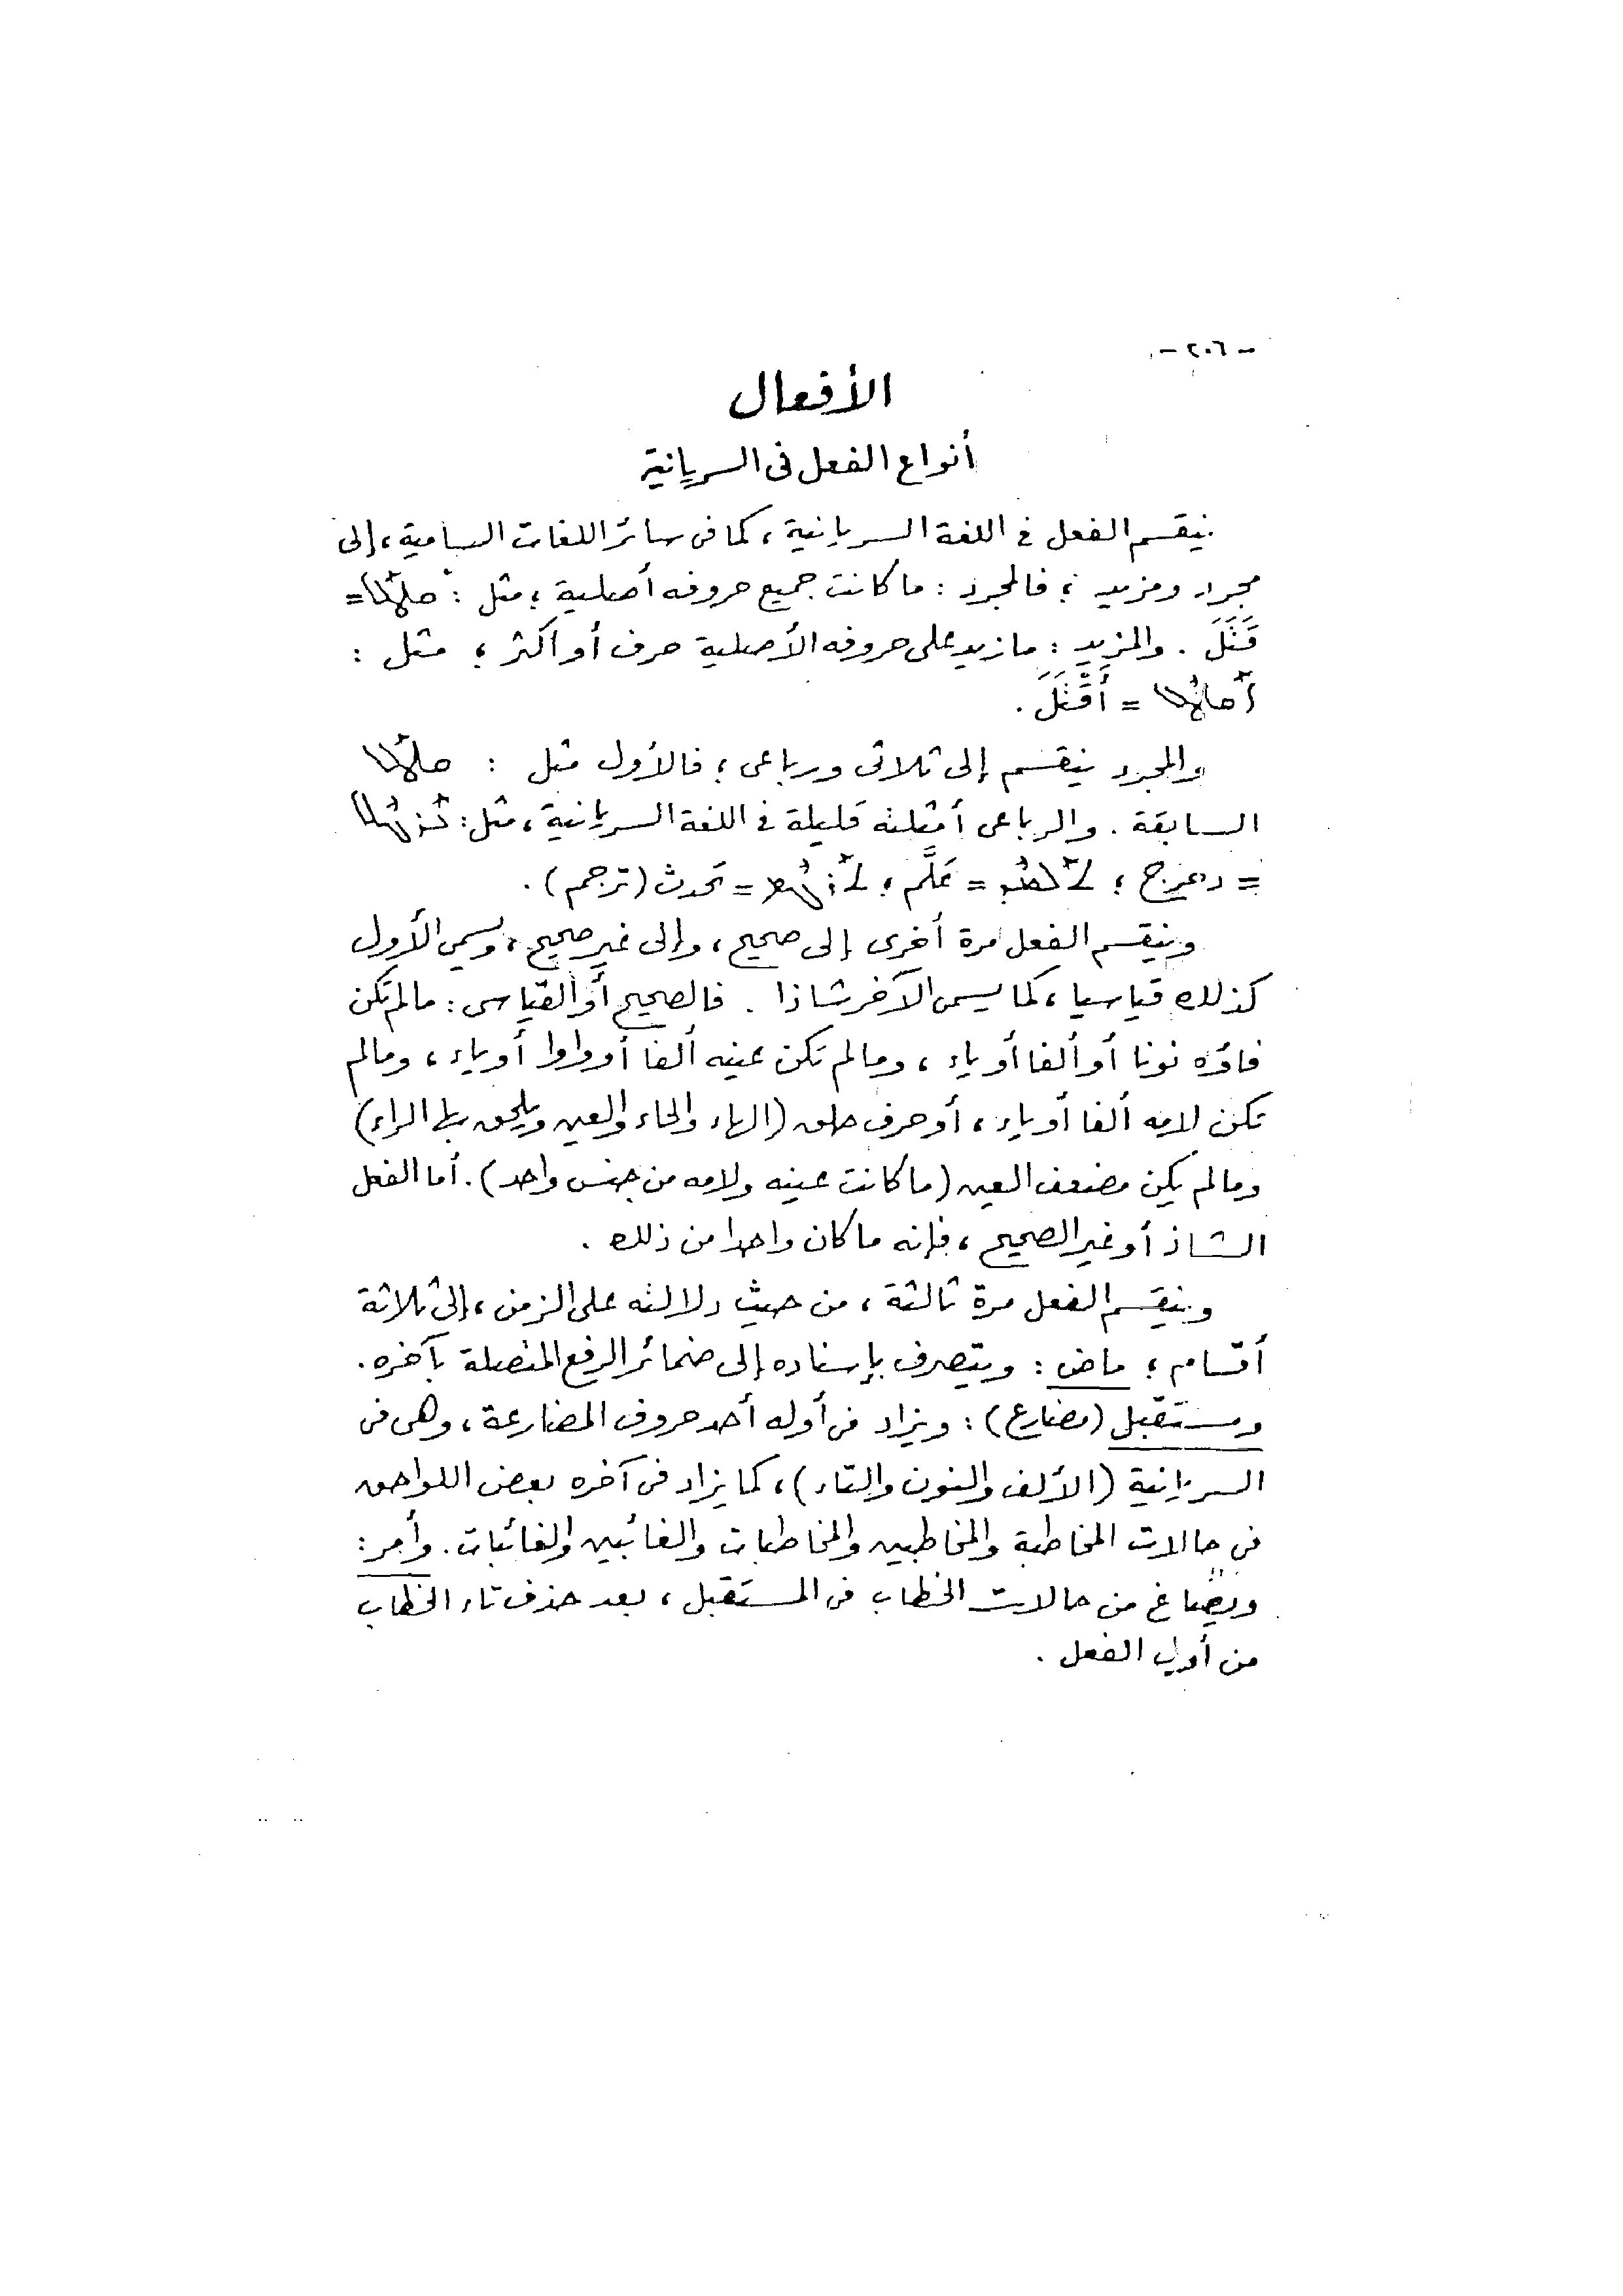 - ٢٠٦ -
الأفعال
أنواع الفعل فى السريانية
ينقسم الفعل فى اللغة السريانية ، كما فى سائر اللغات السامية ، إلى
مجرد ومزيد ؛ فالمجرد : ما كانت جميع حروفه أصلية ؛ مثل : ܩܛܰܠ =
قَتَلَ . والمزيد : ما زيد على حروفه الأصلية حرف أو أكثر ؛ مثل :
=
والمجرد ينقسم إلى ثلاثى ورباعى ؛ فالأول مثل : ܩܛܰܠ
السابقة . والرباعى أمثلته قليلة فى اللغة السريانية ، مثل :
= دحرج ؛ = عَلَّم ؛ = تحدث (ترجم) .
وينقسم الفعل مرة أخرى إلى صحيح ، وإلى غير صحيح ، ويسمى الأول
كذلك قياسيا ، كما يسمى الآخر شاذا . فالصحيح أو القياسى : ما لم تكن
فاؤه نونا أو ألفا أو ياء ، وما لم تكن عينه ألفا أو واوا أو ياء ، وما لم
تكن لامه ألفا أو ياء ، أو حرف حلق (الهاء والحاء والعين ويلحق بها الراء)
وما لم يكن مضعف العين (ما كانت عينه ولامه من جنس واحد) . أما الفعل
الشاذ أو غير الصحيح ، فإنه ما كان واحدا من ذلك .
وينقسم الفعل مرة ثالثة ، من حيث دلالته على الزمن ، إلى ثلاثة
أقسام ؛ ماض : ويتصرف بإسناده إلى ضمائر الرفع المتصلة بآخره .
ومستقبل (مضارع) : ويزاد فى أوله أحد حروف المضارعة ، وهى فى
السريانية (الألف والنون والتاء) ، كما يزاد فى آخره بعض اللواحق
فى حالات المخاطبة والمخاطبين والمخاطبات والغائبين والغائبات . وأمر :
ويصاغ من حالات الخطاب فى المستقبل ، بعد حذف تاء الخطاب
من أول الفعل .